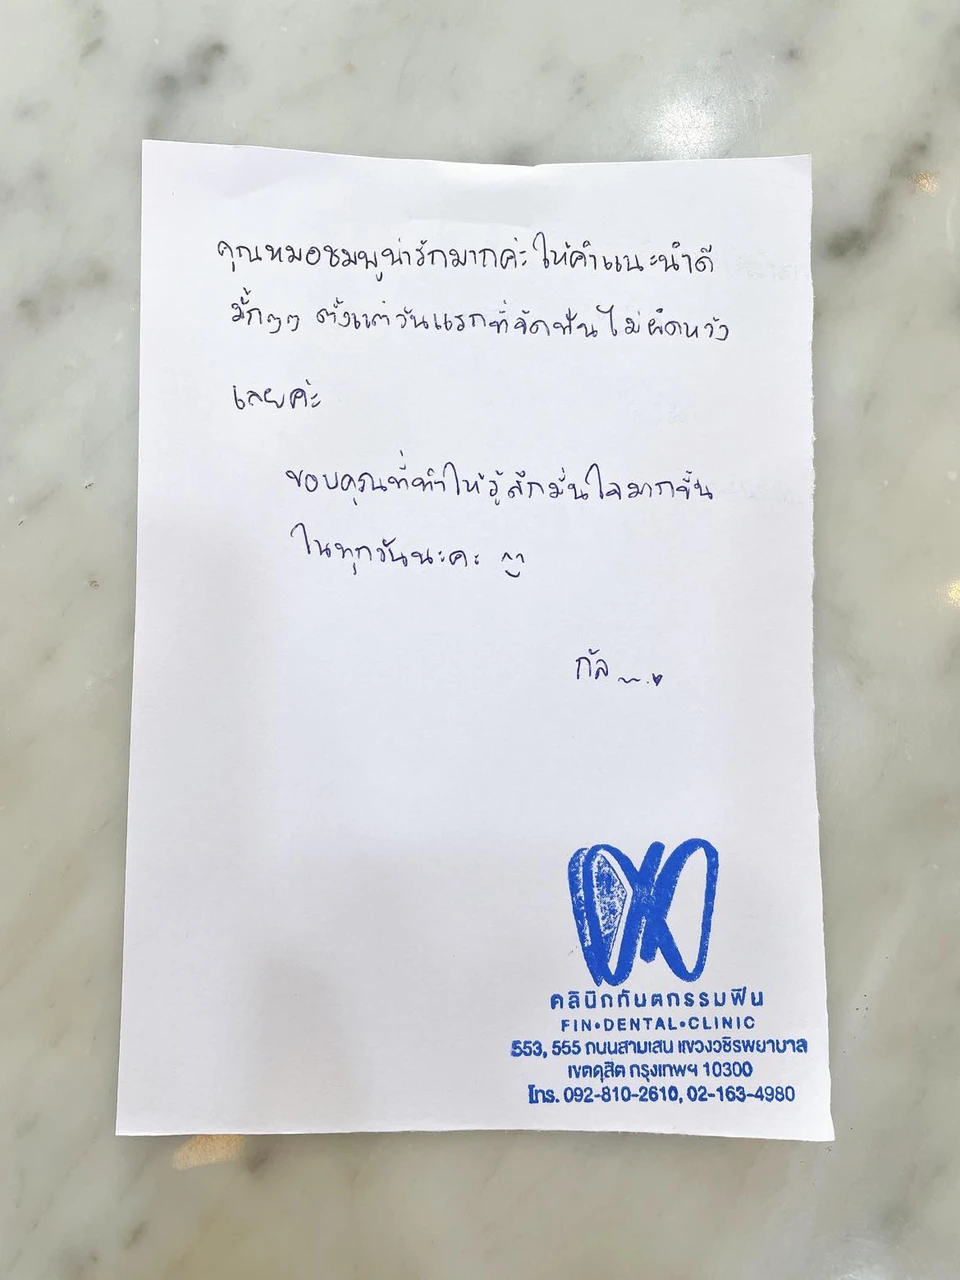 คุณหมอชมพูน่ารักมากค่ะ ให้คำแนะนำดี
มั้กๆๆ ตั้งแต่วันแรกที่จัดฟัน ไม่ผิดหวัง
เลยค่ะ
ขอบคุณที่ทำให้รู้สึกมั่นใจมากขึ้น
ในทุกวันนะคะ ^^
กัล
คลินิกทันตกรรมฟิน
FIN•DENTAL•CLINIC
553, 555 ถนนสามเสน แขวงวชิรพยาบาล
เขตดุสิต กรุงเทพฯ 10300
โทร. 092-810-2610, 02-163-4980